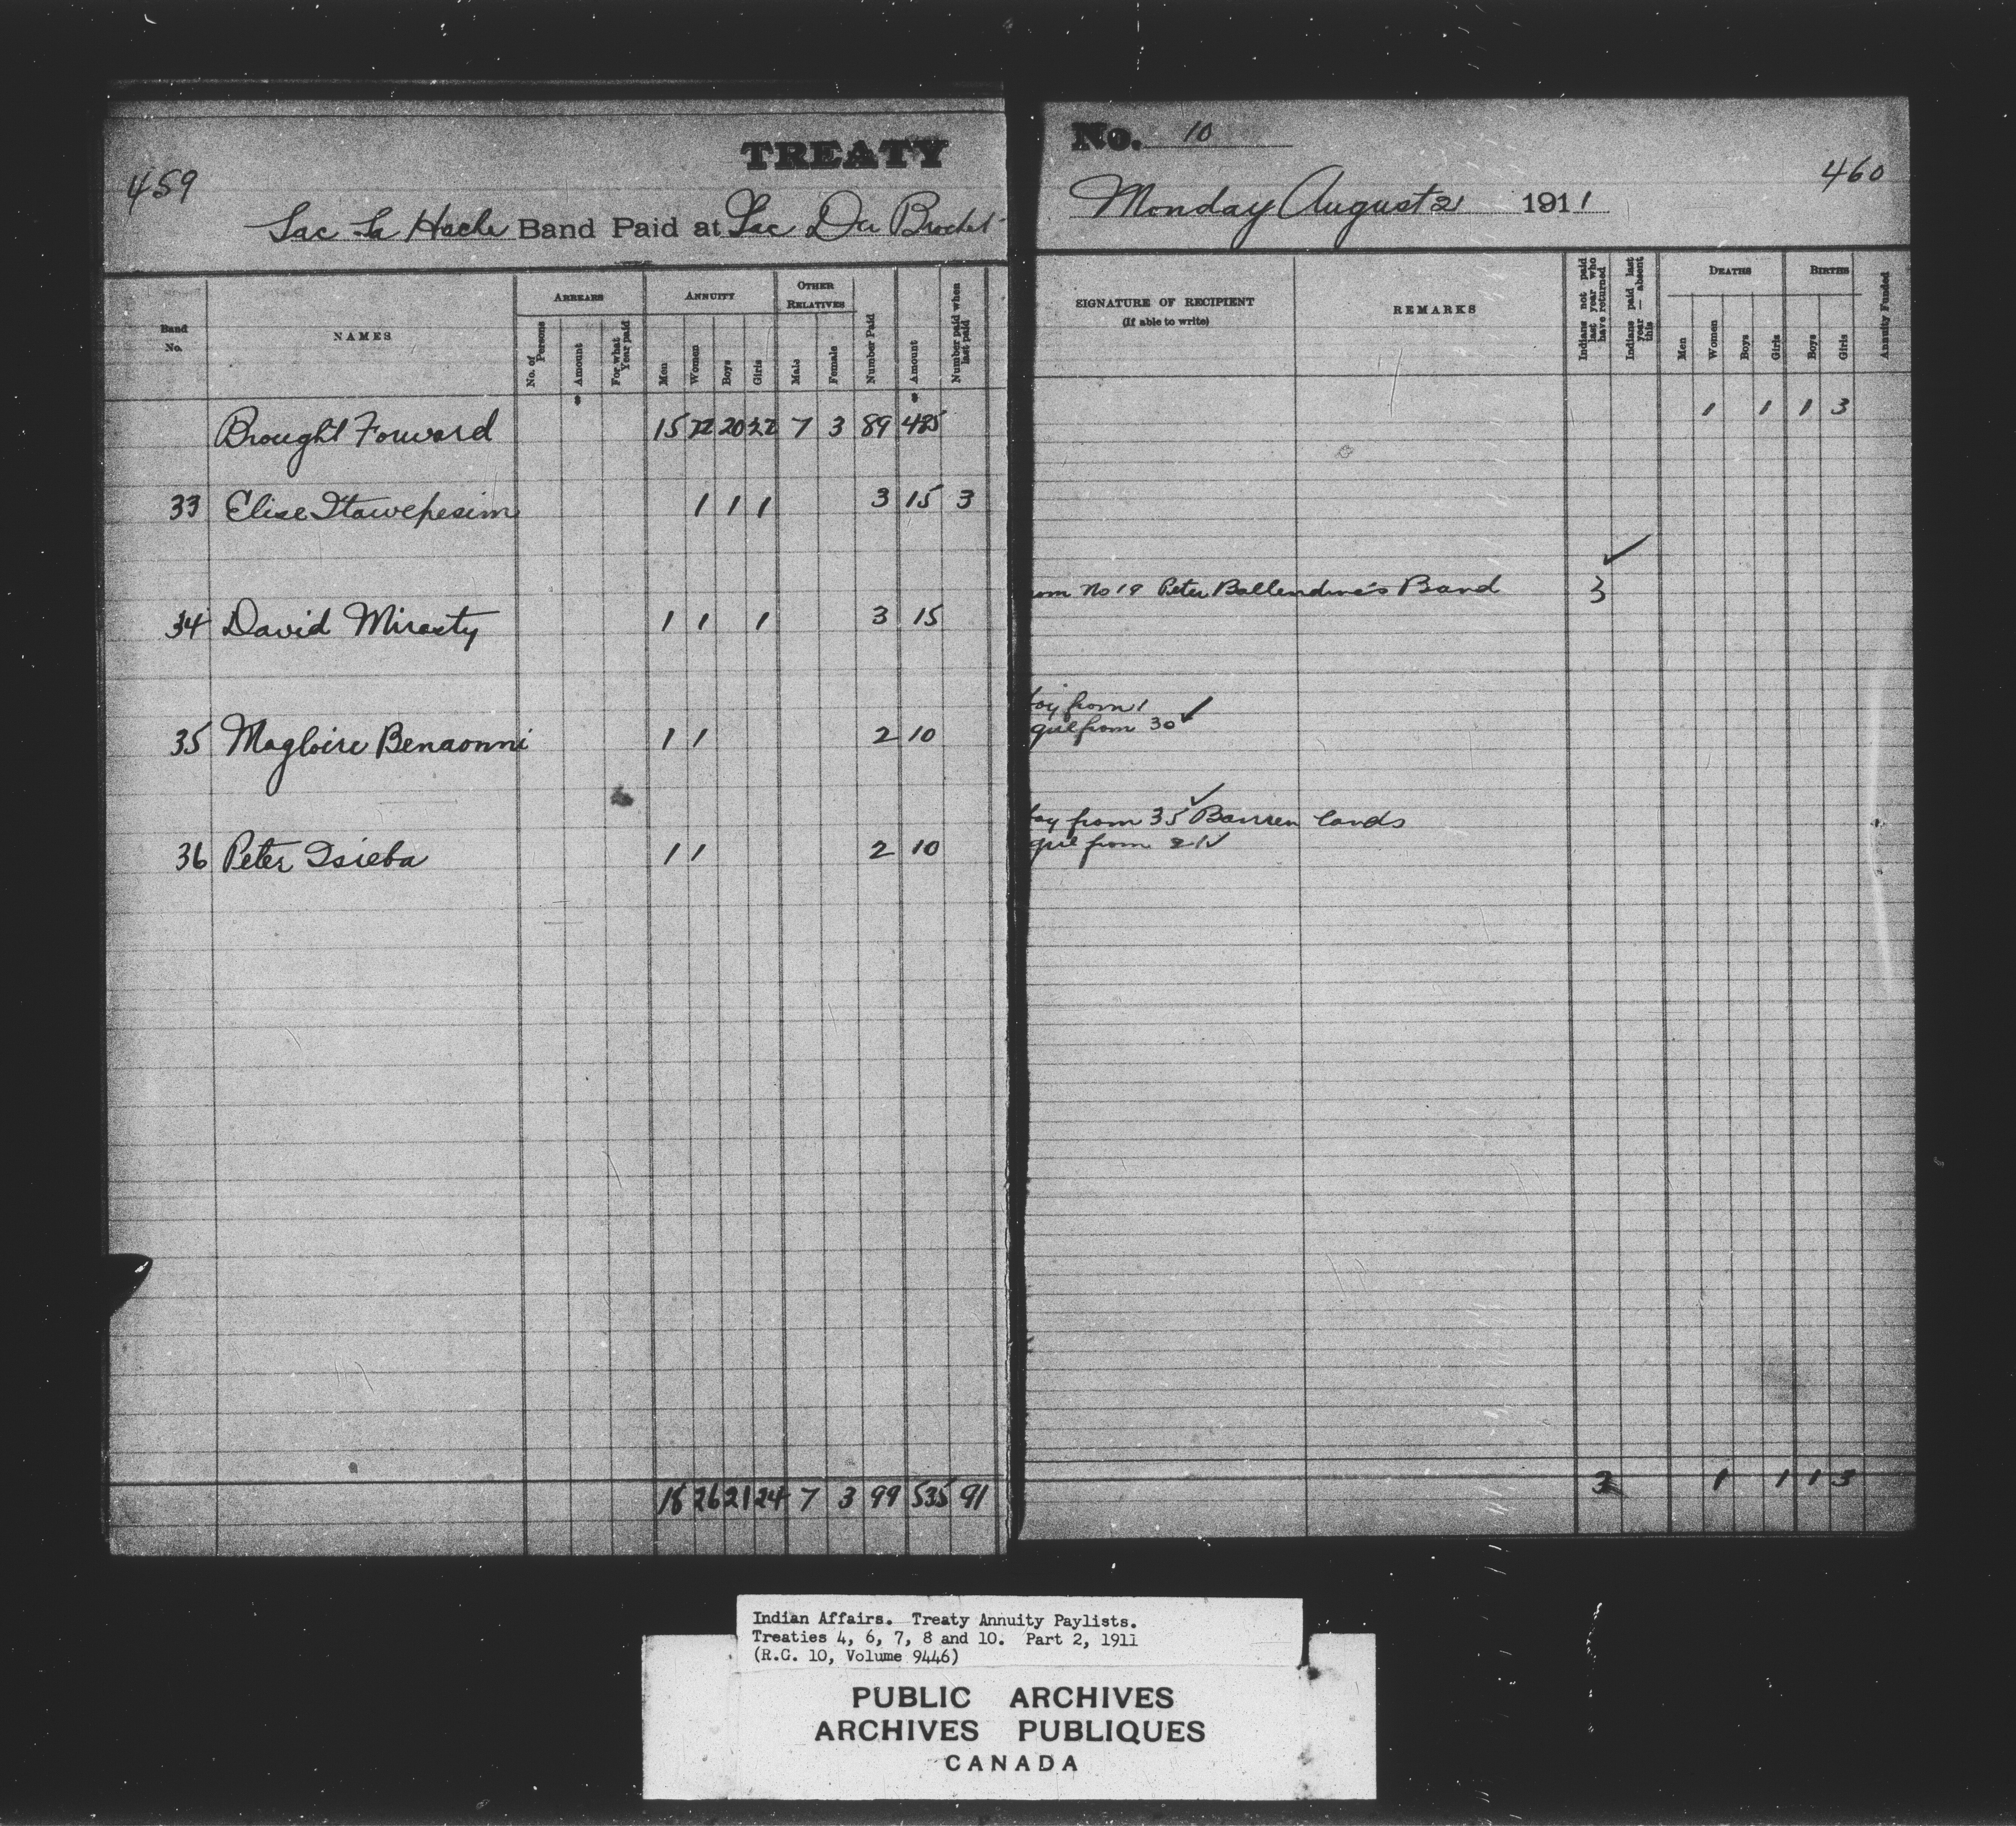 TREATY
459
Lac La Hache Band Paid at Lac Du Brochet
Band No. NAMES ARREARS ANNUITY OTHER RELATIVES
No. of Persons Amount For what Year paid Men Women Boys Girls Male Female Number Paid Amount Number paid when last paid
$ $
Brought Forward 15 22 20 22 7 3 89 485
33 Elise Itawepesim 1 1 1 3 15 3
34 David Mirasty 1 1 1 3 15
35 Magloire Benaonni 1 1 2 10
36 Peter Isieba 1 1 2 10
18 26 21 24 7 3 99 535 91
No. 10
460
Monday August 21 1911
SIGNATURE OF RECIPIENT
(If able to write)
REMARKS
Indians not paid last year who have returned
Indians paid last year — absent this
DEATHS BIRTHS
Men Women Boys Girls Boys Girls Annuity Funded
1 1 1 3
om No 19 Peter Ballendine's Band 3
oy from 1
girl from 30
boy from 35 Barren lands
girl from 21
3 1 1 1 3
Indian Affairs. Treaty Annuity Paylists.
Treaties 4, 6, 7, 8 and 10. Part 2, 1911
(R.G. 10, Volume 9446)
PUBLIC ARCHIVES
ARCHIVES PUBLIQUES
CANADA